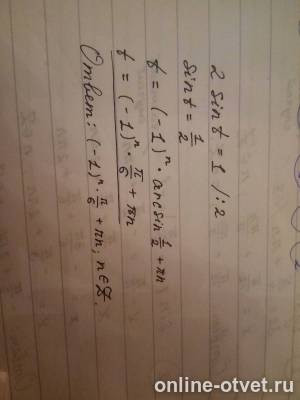 2 sin t = 1 /: 2
sin t = 1/2
t = (-1)ⁿ · arcsin 1/2 + πn
t = (-1)ⁿ · π/6 + πn
Ответ: (-1)ⁿ · π/6 + πn; n∈Z.
online-otvet.ru